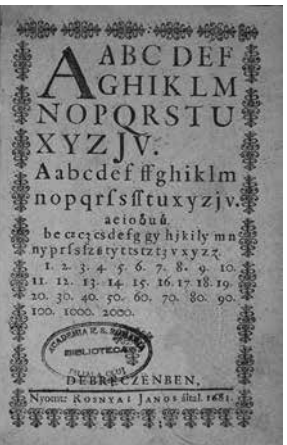 A ABC DEF
AGHIKLM
NOPQRSTU
XYZJV.
Aabcdef ffghiklm
nopqrſsſſtuxyzjv.
aeioöuű.
be cz cz cs de f g gy h j k i ly m n
ny p r ſ s ſz ß ty tt st tz tz v x y z ʒ.
1. 2. 3. 4. 5. 6. 7. 8. 9. 10.
11. 12. 13. 14. 15. 16. 17. 18. 19.
20. 30. 40. 50. 60. 70. 80. 90.
100. 1000. 2000.
ACADEMIA R. S. ROMANIA
BIBLIOTECA
FILIALA CLUJ
DEBRECZENBEN,
Nyomt: ROSNYAI JANOS által. 1681.